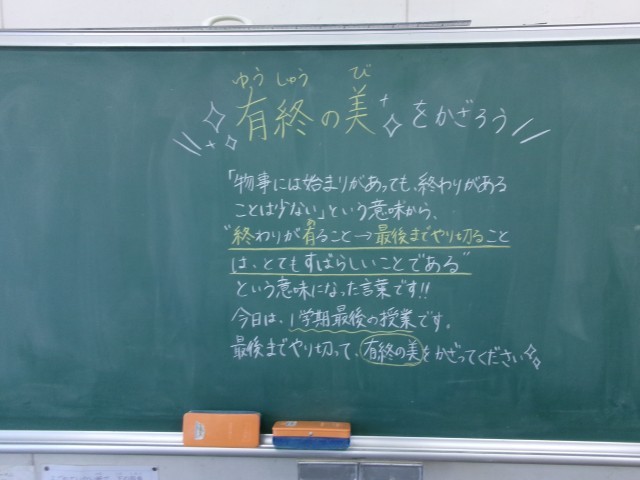 ゆう しゅう び
有終の美をかざろう
「物事には始まりがあっても、終わりがある
ことは少ない」という意味から、
"終わりが有ること→最後までやり切ること
は、とてもすばらしいことである"
という意味になった言葉です!!
今日は、1学期最後の授業です。
最後までやり切って、有終の美をかざってください